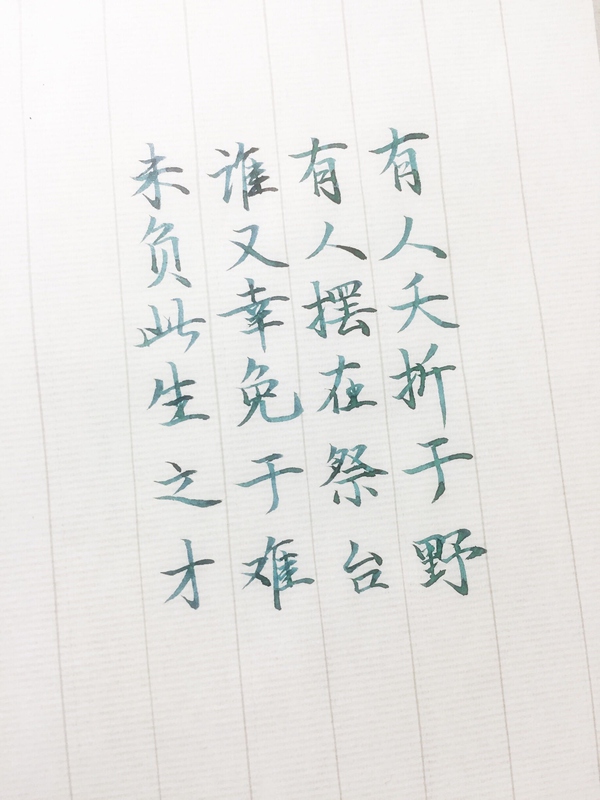 有人夭折于野
有人摆在祭台
谁又幸免于难
未负此生之才